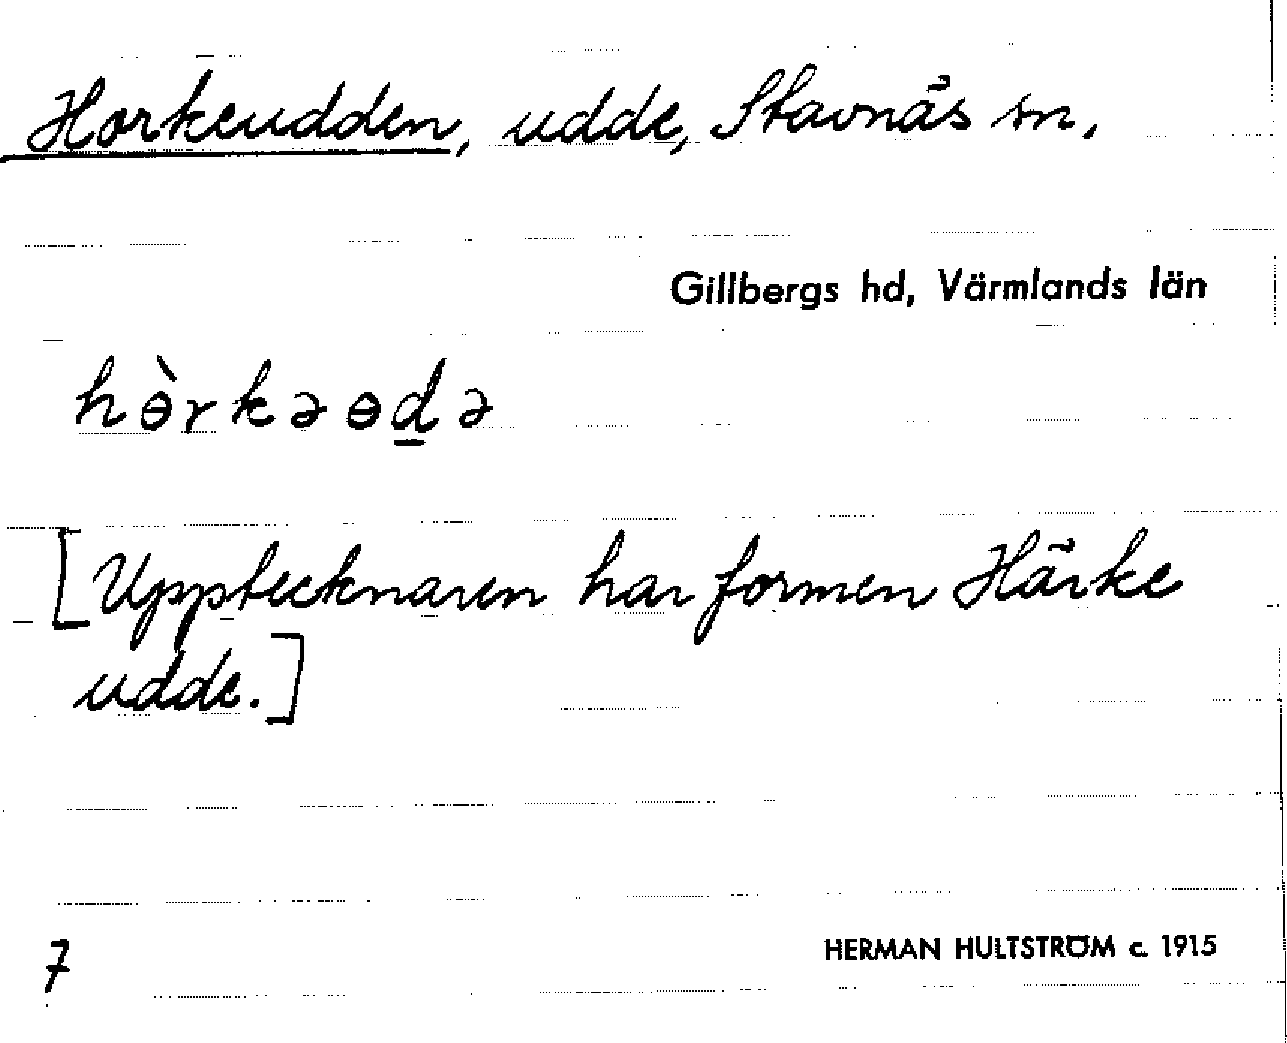 Horkeudden, udde, Stavnäs sn,
Gillbergs hd, Värmlands län
hɵ̀rkəɵd̲ə
[Upptecknaren har formen Härke
udde.]
7
HERMAN HULTSTRÖM c. 1915